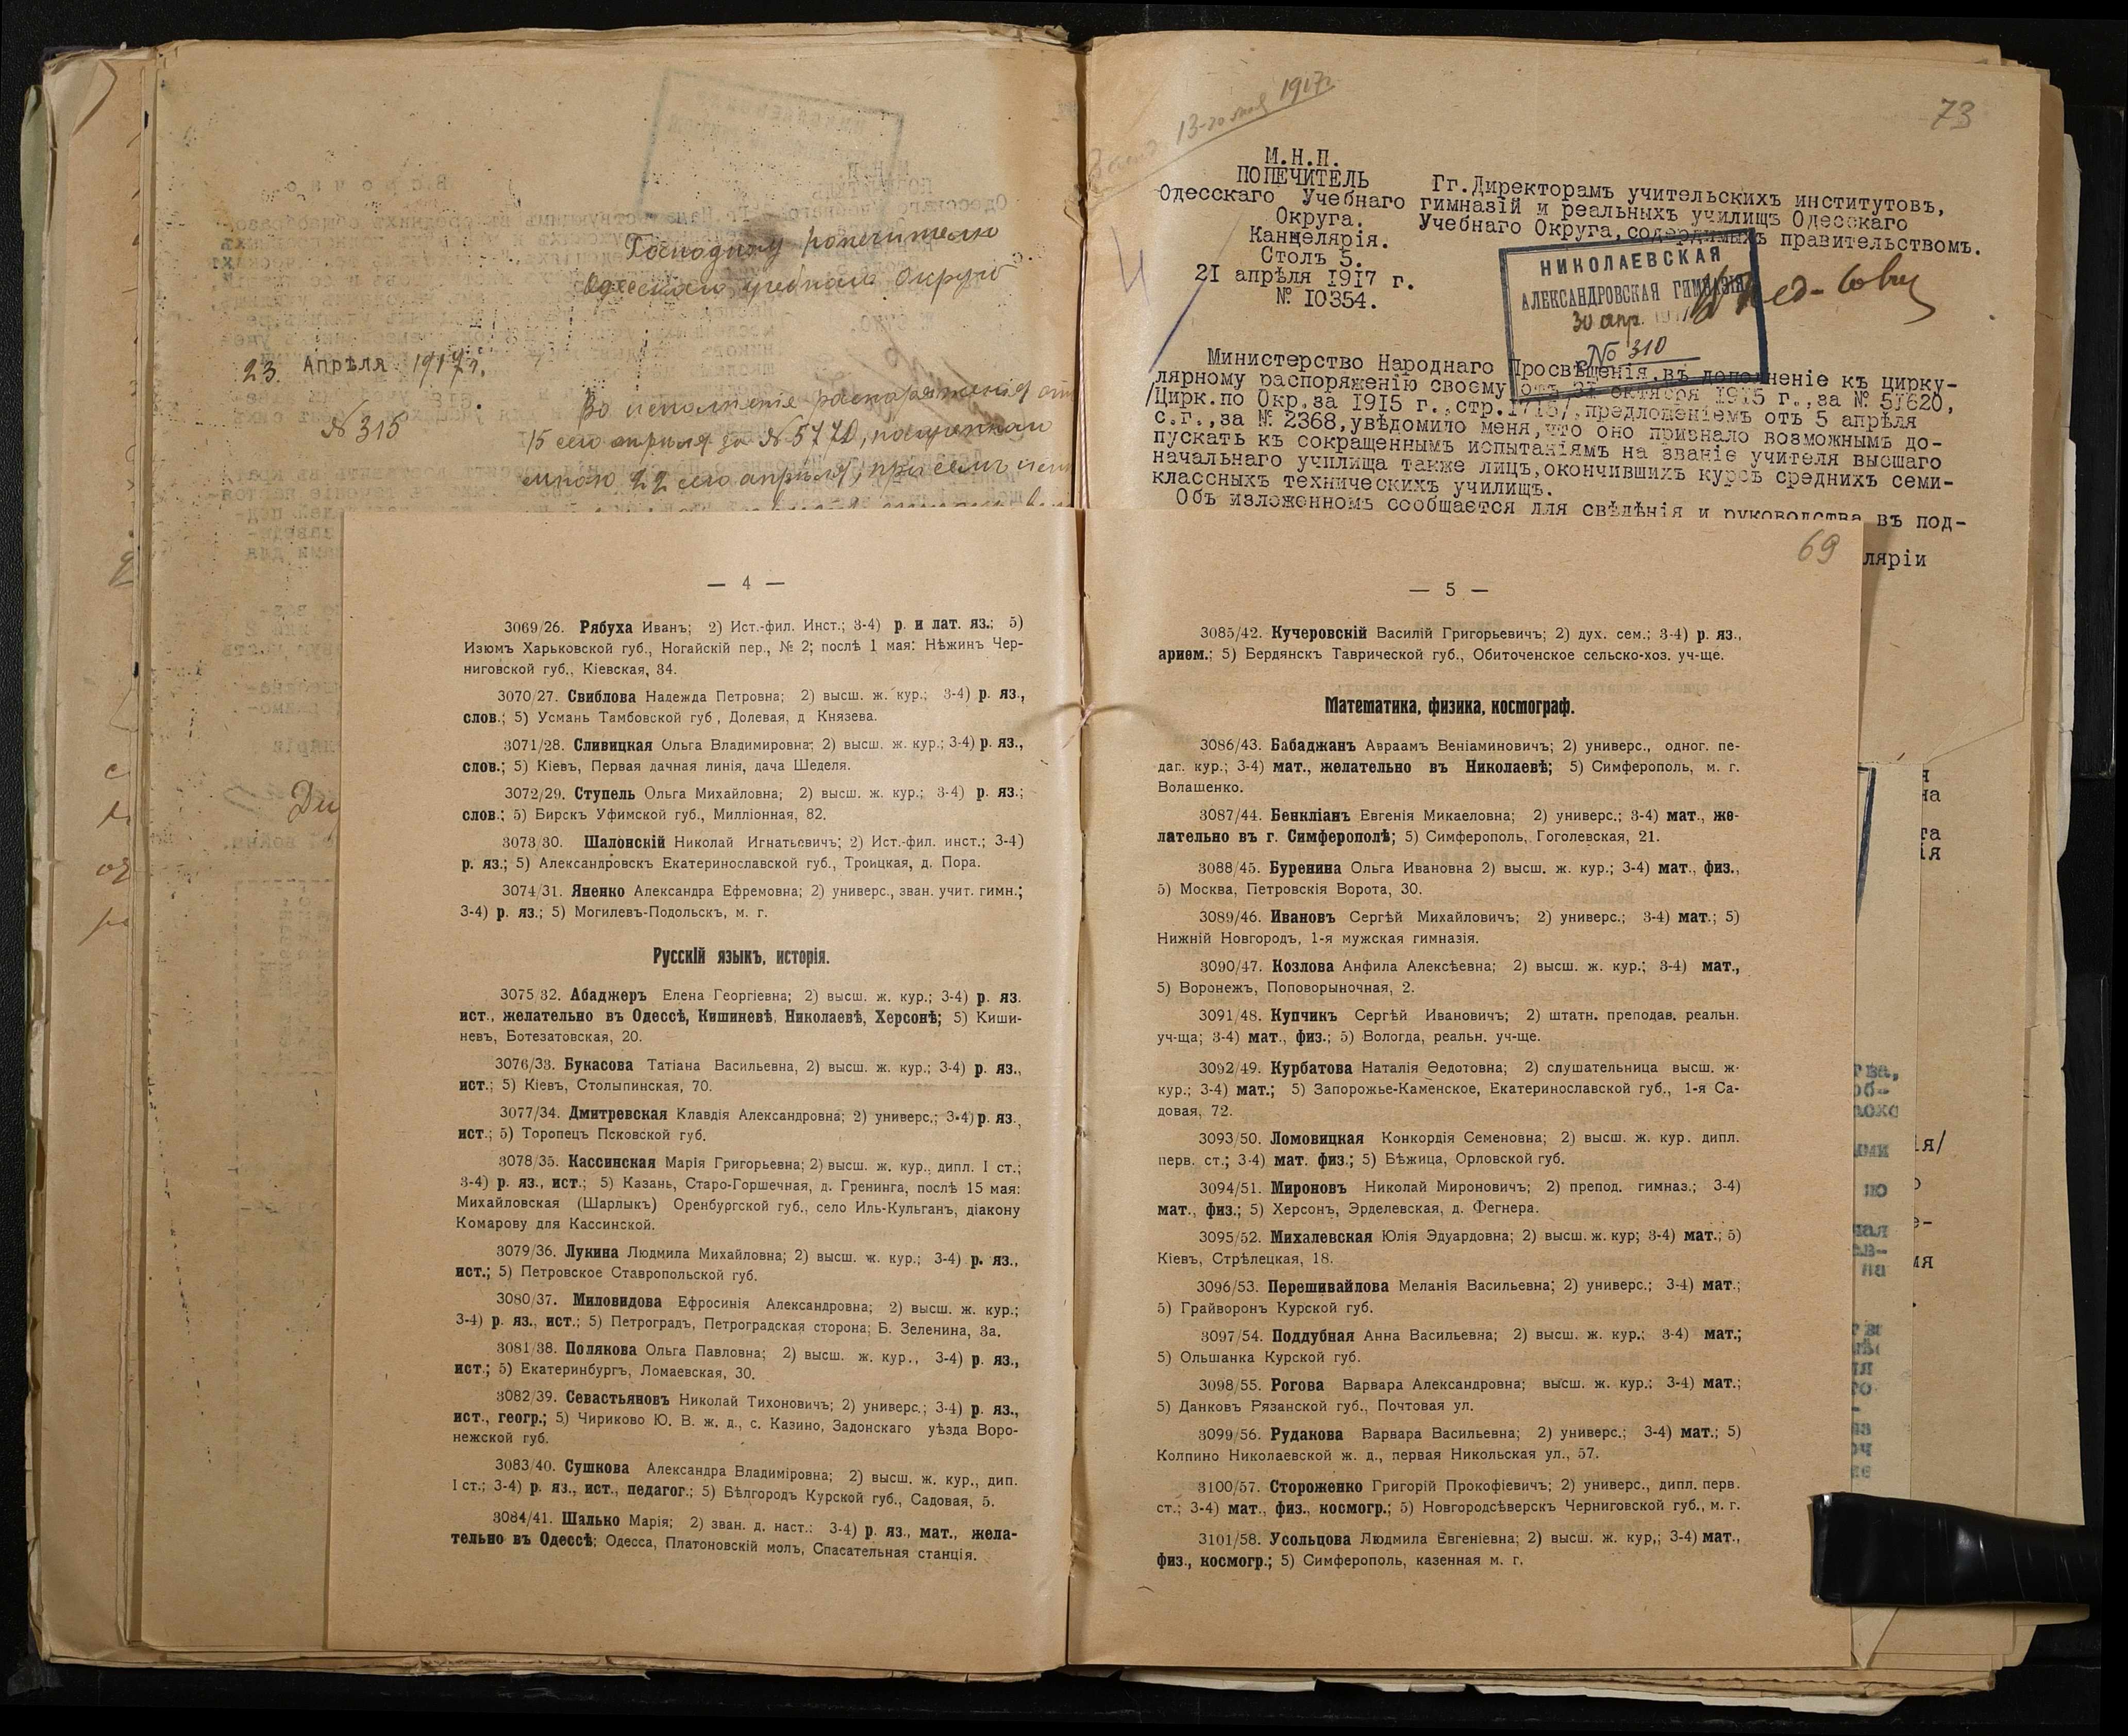 Господину Попечителю
Одесскаго учебнаго Округа
23 Апрѣля 1917 г.
№ 315
Во исполненіе распоряженія отъ
15 сего апрѣля за № 5770, полученнаго
мною 22 сего апрѣля, при семъ
— 4 —
3069/26. Рябуха Иванъ; 2) Ист.-фил. Инст.; 3-4) р. и лат. яз.; 5)
Изюмъ Харьковской губ., Ногайскій пер., № 2; послѣ 1 мая: Нѣжинъ Чер-
ниговской губ., Кіевская, 34.
3070/27. Свиблова Надежда Петровна; 2) высш. ж. кур.; 3-4) р. яз.,
слов.; 5) Усмань Тамбовской губ, Долевая, д Князева.
3071/28. Сливицкая Ольга Владимировна; 2) высш. ж. кур.; 3-4) р. яз.,
слов.; 5) Кіевъ, Первая дачная линія, дача Шеделя.
3072/29. Ступель Ольга Михайловна; 2) высш. ж. кур.; 3-4) р. яз.;
слов.; 5) Бирскъ Уфимской губ., Милліонная, 82.
3073/30. Шалонскій Николай Игнатьевичъ; 2) Ист.-фил. инст.; 3-4)
р. яз.; 5) Александровскъ Екатеринославской губ., Троицкая, д. Пора.
3074/31. Яненко Александра Ефремовна; 2) универс., зван. учит. гимн.;
3-4) р. яз.; 5) Могилевъ-Подольскъ, м. г.
Русскій языкъ, исторія.
3075/32. Абаджеръ Елена Георгіевна; 2) высш. ж. кур.; 3-4) р. яз.
ист., желательно въ Одессѣ, Кишиневѣ, Николаевѣ, Херсонѣ; 5) Киши-
невъ, Ботезатовская, 20.
3076/33. Букасова Татіана Васильевна, 2) высш. ж. кур.; 3-4) р. яз.,
ист.; 5) Кіевъ, Столыпинская, 70.
3077/34. Дмитревская Клавдія Александровна; 2) универс.; 3-4) р. яз.,
ист.; 5) Торопецъ Псковской губ.
3078/35. Кассинская Марія Григорьевна; 2) высш. ж. кур., дипл. I ст.;
3-4) р. яз., ист.; 5) Казань, Старо-Горшечная, д. Гренинга, послѣ 15 мая:
Михайловская (Шарлыкъ) Оренбургской губ., село Иль-Кульганъ, діакону
Комарову для Кассинской.
3079/36. Лукина Людмила Михайловна; 2) высш. ж. кур.; 3-4) р. яз.,
ист.; 5) Петровское Ставропольской губ.
3080/37. Миловидова Ефросинія Александровна; 2) высш. ж. кур.;
3-4) р. яз., ист.; 5) Петроградъ, Петроградская сторона; Б. Зеленина, 3а.
3081/38. Полякова Ольга Павловна; 2) высш. ж. кур., 3-4) р. яз.,
ист.; 5) Екатеринбургъ, Ломаевская, 30.
3082/39. Севастьяновъ Николай Тихоновичъ; 2) универс.; 3-4) р. яз.,
ист., геогр.; 5) Чириково Ю. В. ж. д., с. Казино, Задонскаго уѣзда Воро-
нежской губ.
3083/40. Сушкова Александра Владиміровна; 2) высш. ж. кур., дип.
I ст.; 3-4) р. яз., ист., педагог.; 5) Бѣлгородъ Курской губ., Садовая, 5.
3084/41. Шалько Марія; 2) зван. д. наст.: 3-4) р. яз., мат., жела-
тельно въ Одессѣ; Одесса, Платоновскій молъ, Спасательная станція.
13-го мая 1917 г.
73
М.Н.П.
ПОПЕЧИТЕЛЬ
Одесскаго Учебнаго
Округа.
Канцелярія.
Столъ 5.
21 апрѣля 1917 г.
№ 10354.
Гг.Директорамъ учительскихъ институтовъ,
гимназій и реальныхъ училищъ Одесскаго
Учебнаго Округа,содержимыхъ правительствомъ.
НИКОЛАЕВСКАЯ
АЛЕКСАНДРОВСКАЯ ГИМНАЗІЯ
30 апр. 1917
№ 310
Министерство Народнаго Просвѣщенія,въ дополненіе къ цирку-
лярному распоряженію своему отъ 31 октября 1915 г.,за № 51620,
/Цирк.по Окр.за 1915 г.,стр.1716/,предложеніемъ отъ 5 апрѣля
с.г.,за № 2368,увѣдомило меня,что оно признало возможнымъ до-
пускать къ сокращеннымъ испытаніямъ на званіе учителя высшаго
начальнаго училища также лицъ,окончившихъ курсъ среднихъ семи-
классныхъ техническихъ училищъ.
Объ изложенномъ сообщается для свѣдѣнія и руководства въ под-
ляріи
69
— 5 —
3085/42. Кучеровскій Василій Григорьевичъ; 2) дух. сем.; 3-4) р. яз.,
арием.; 5) Бердянскъ Таврической губ., Обиточенское сельско-хоз. уч-ще.
Математика, физика, космограф.
3086/43. Бабаджанъ Авраамъ Веніаминовичъ; 2) универс., одног. пе-
даг. кур.; 3-4) мат., желательно въ Николаевѣ; 5) Симферополь, м. г.
Волашенко.
3087/44. Бенкліанъ Евгенія Микаеловна; 2) универс.; 3-4) мат., же-
лательно въ г. Симферополѣ; 5) Симферополь, Гоголевская, 21.
3088/45. Буренина Ольга Ивановна 2) высш. ж. кур.; 3-4) мат., физ.,
5) Москва, Петровскія Ворота, 30.
3089/46. Ивановъ Сергѣй Михайловичъ; 2) универс.; 3-4) мат.; 5)
Нижній Новгородъ, 1-я мужская гимназія.
3090/47. Козлова Анфила Алексѣевна; 2) высш. ж. кур.; 3-4) мат.,
5) Воронежъ, Поповорыночная, 2.
3091/48. Купчикъ Сергѣй Ивановичъ; 2) штатн. преподав. реальн.
уч-ща; 3-4) мат., физ.; 5) Вологда, реальн. уч-ще.
3092/49. Курбатова Наталія Ѳедотовна; 2) слушательница высш. ж.
кур.; 3-4) мат.; 5) Запорожье-Каменское, Екатеринославской губ., 1-я Са-
довая, 72.
3093/50. Ломовицкая Конкордія Семеновна; 2) высш. ж. кур. дипл.
перв. ст.; 3-4) мат. физ.; 5) Бѣжица, Орловской губ.
3094/51. Мироновъ Николай Миронович; 2) препод. гимназ.; 3-4)
мат., физ.; 5) Херсонъ, Эрделевская, д. Фегнера.
3095/52. Михалевская Юлія Эдуардовна; 2) высш. ж. кур; 3-4) мат.; 5)
Кіевъ, Стрѣлецкая, 18.
3096/53. Перешивайлова Меланія Васильевна; 2) универс.; 3-4) мат.;
5) Грайворонъ Курской губ.
3097/54. Поддубная Анна Васильевна; 2) высш. ж. кур.; 3-4) мат.;
5) Ольшанка Курской губ.
3098/55. Рогова Варвара Александровна; высш. ж. кур.; 3-4) мат.;
5) Данковъ Рязанской губ., Почтовая ул.
3099/56. Рудакова Варвара Васильевна; 2) универс.; 3-4) мат.; 5)
Колпино Николаевской ж. д., первая Никольская ул., 57.
3100/57. Стороженко Григорій Прокофіевичъ; 2) универс., дипл. перв.
ст.; 3-4) мат., физ., космогр.; 5) Новгородсѣверскъ Черниговской губ., м. г.
3101/58. Усольцова Людмила Евгеніевна; 2) высш. ж. кур,; 3-4) мат.,
физ., космогр.; 5) Симферополь, казенная м. г.